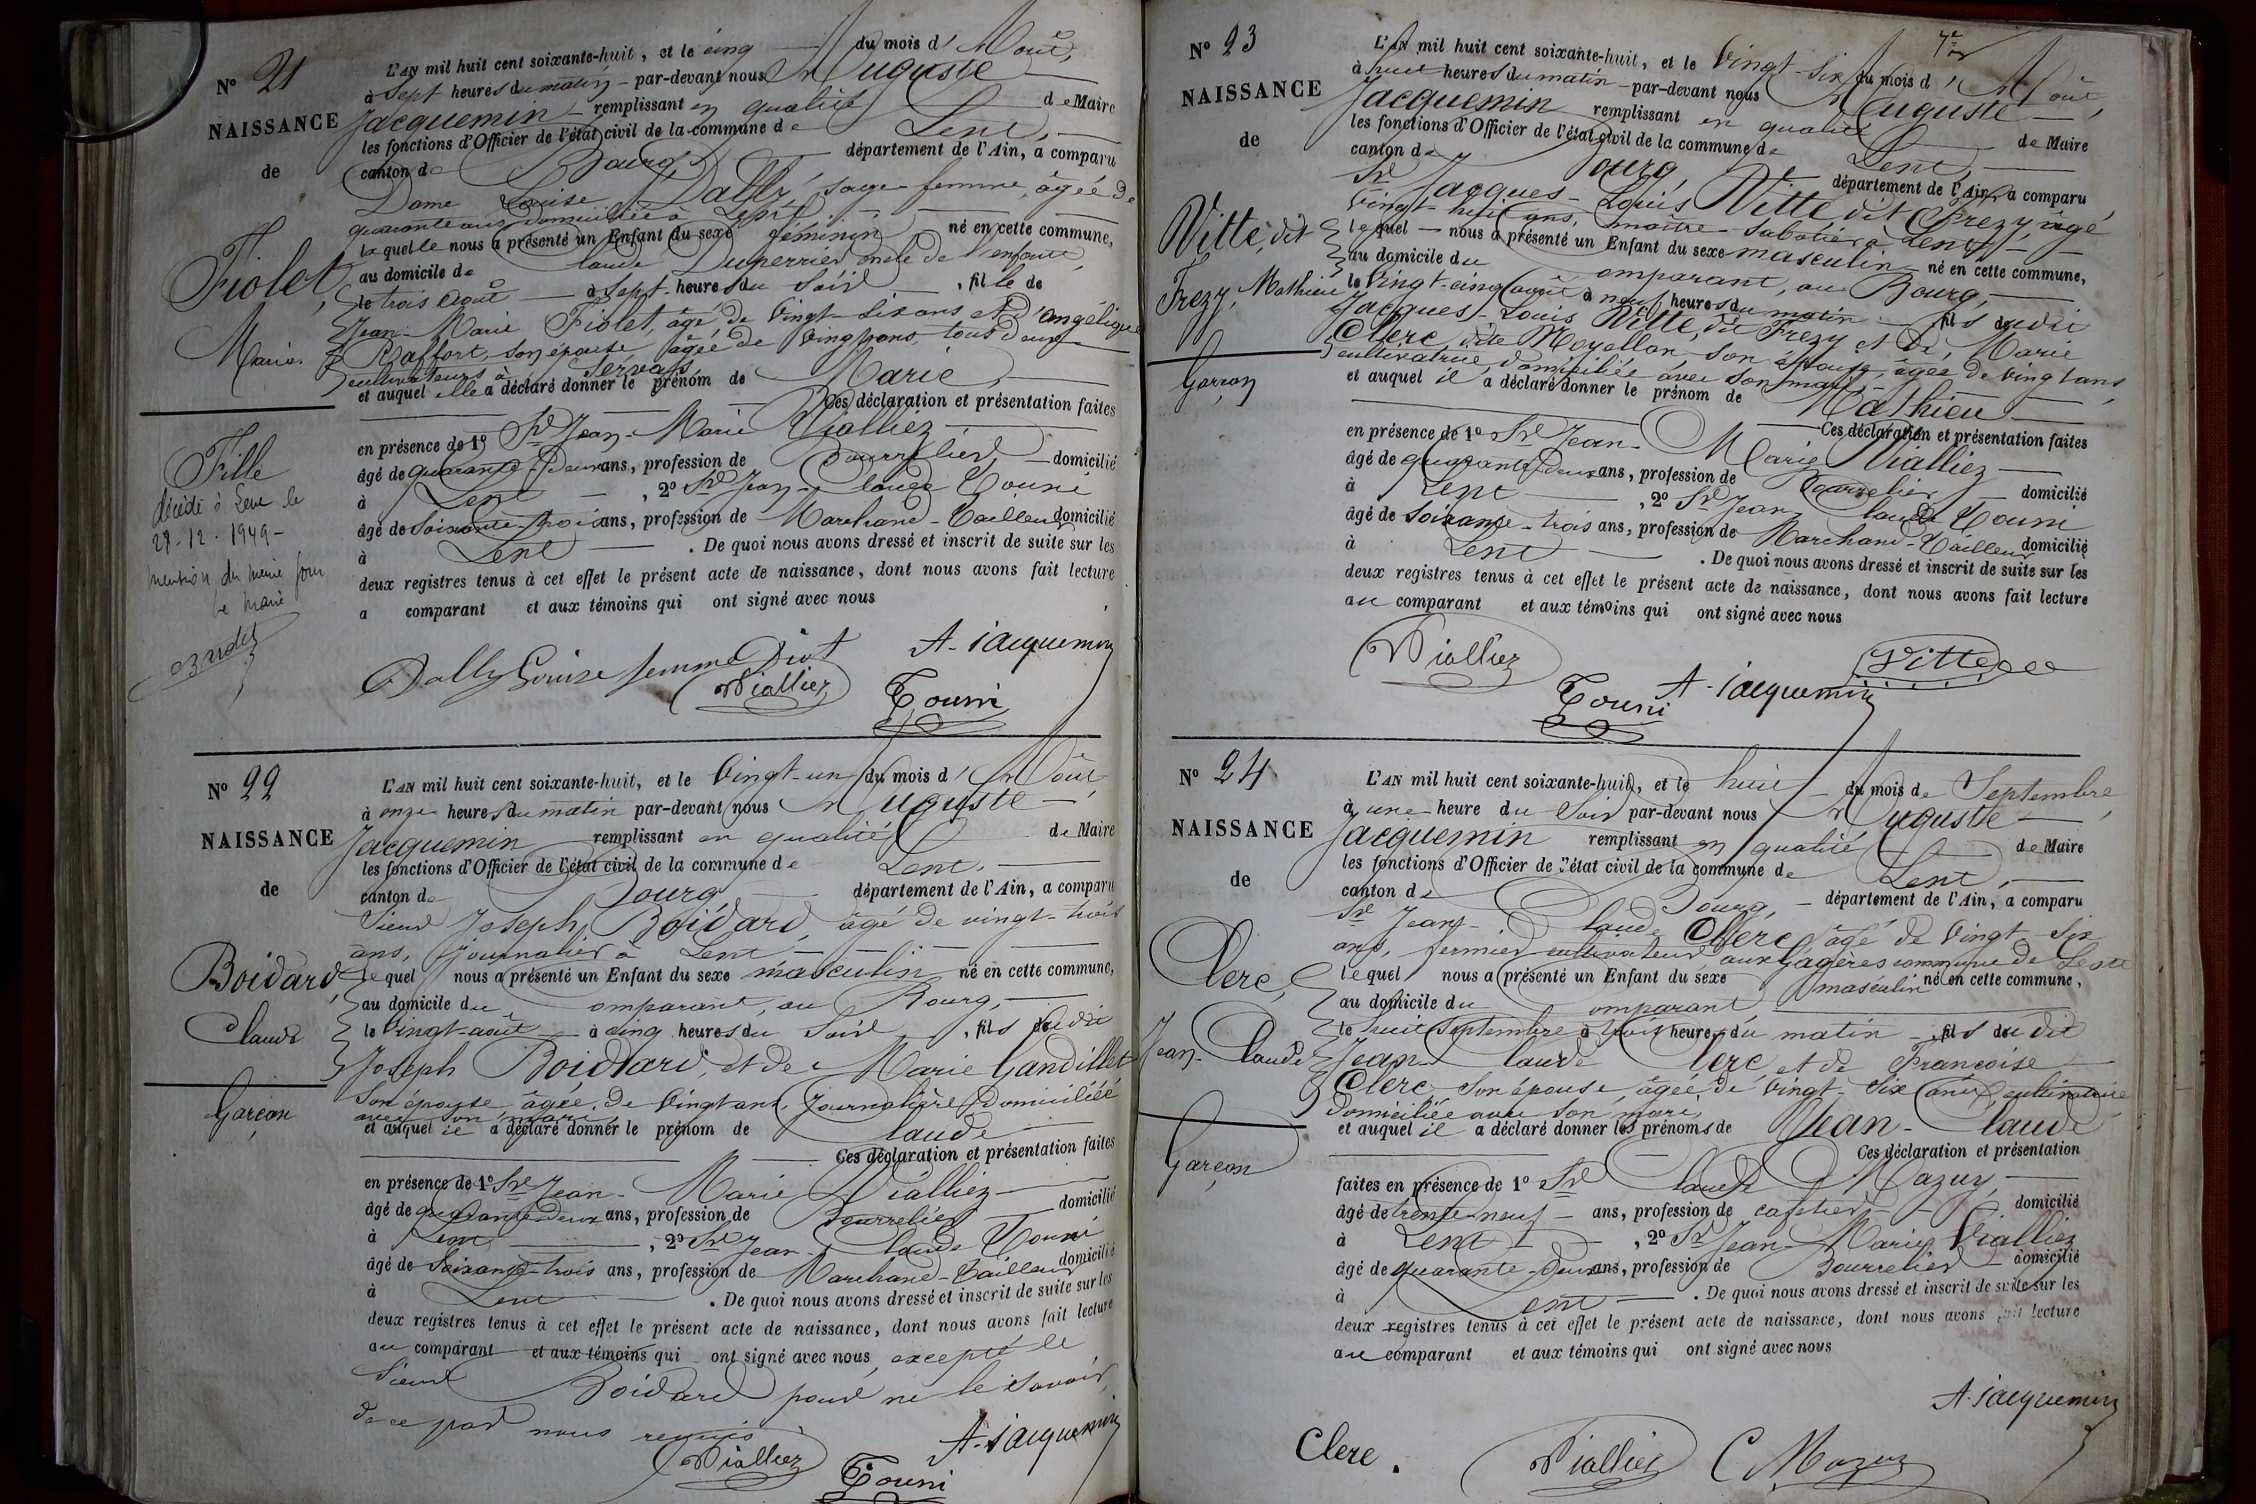 N° 21
NAISSANCE
de
Fiolet,
Marie.
Fille
décédé à Lent le
28-12-1949-
mention du même jour
le maire
L'AN mil huit cent soixante-huit, et le cinq du mois d'Août,
à sept heures du matin par-devant nous Auguste
Jacquemin remplissant en qualité de Maire
les fonctions d'Officier de l'état civil de la commune de Lent,
canton de Bourg, département de l'Ain, a comparu
Dame Louise Dally, sage-femme, âgée de
quarante ans domiciliée à Lent,
laquelle nous a présenté un Enfant du sexe féminin né en cette commune,
au domicile de Claude Duperrier oncle de l'enfant,
le trois Août à sept heures du soir, fille de
Jean-Marie Fiolet, âgé de vingt-six ans et d'angélique
Raffort, son épouse âgée de vingt ans, tous deux
cultivateurs à Servas,
et auquel elle a déclaré donner le prénom de Marie,
Ces déclaration et présentation faites
en présence de 1° Sr Jean-Marie Vialliez
âgé de quarante-deux ans, profession de Bourrelier, domicilié
à Lent, 2° Sr Jean-Claude Tourni
âgé de soixante-trois ans, profession de Marchand-Tailleur domicilié
à Lent. De quoi nous avons dressé et inscrit de suite sur les
deux registres tenus à cet effet le présent acte de naissance, dont nous avons fait lecture
a comparant et aux témoins qui ont signé avec nous
Dally Louise femme Diot
A. Jacquemin
Vialliez
Tourni
N° 22
NAISSANCE
de
Boidard,
Claude
Garçon
L'AN mil huit cent soixante-huit, et le vingt-un du mois d'Août,
à onze heures du matin par-devant nous Auguste
Jacquemin remplissant en qualité de Maire
les fonctions d'Officier de l'état civil de la commune de Lent,
canton de Bourg département de l'Ain, a comparu
Sieur Joseph Boidard, âgé de vingt-trois
ans, journalier à Lent
lequel nous a présenté un Enfant du sexe masculin né en cette commune,
au domicile du Comparant, au Bourg,
le vingt-août à cinq heures du soir, fils dudit
Joseph Boidard, et de Marie Gandillet
son épouse âgée de vingt ans, journalière, domiciliée
avec son mari
et auquel il a déclaré donner le prénom de Claude
Ces déclaration et présentation faites
en présence de 1° Sr Jean-Marie Vialliez
âgé de quarante-deux ans, profession de Bourrelier domicilié
à Lent, 2° Sr Jean-Claude Tourni
âgé de soixante-trois ans, profession de Marchand-Tailleur domicilié
à Lent. De quoi nous avons dressé et inscrit de suite sur les
deux registres tenus à cet effet le présent acte de naissance, dont nous avons fait lecture
au comparant et aux témoins qui ont signé avec nous, excepté le
Sieur Boidard pour ne le savoir,
de ce par nous requis.
A. Jacquemin
Vialliez
Tourni
N° 23
NAISSANCE
de
Vitte, dit
Frezy, Mathieu
Garçon
L'AN mil huit cent soixante-huit, et le vingt-six du mois d'Août,
à huit heures du matin par-devant nous Auguste
Jacquemin remplissant en qualité de Maire
les fonctions d'Officier de l'état civil de la commune de Lent,
canton de Bourg, département de l'Ain, a comparu
Sr Jacques-Louis Vitte dit Frezy, âgé
vingt-huit ans, maître-sabotier à Lent,
lequel nous a présenté un Enfant du sexe masculin né en cette commune,
au domicile du Comparant, au Bourg,
le vingt-cinq août à neuf heures du matin fils dudit
Jacques-Louis Vitte, dit Frezy et de Marie
Clerc, dite Moyellon son épouse, âgée de vingt ans,
cultivatrice, domiciliée avec son mari,
et auquel il a déclaré donner le prénom de Mathieu
Ces déclaration et présentation faites
en présence de 1° Sr Jean-Marie Vialliez
âgé de quarante-deux ans, profession de Bourrelier domicilié
à Lent, 2° Sr Jean-Claude Tourni
âgé de soixante-trois ans, profession de Marchand-Tailleur domicilié
à Lent. De quoi nous avons dressé et inscrit de suite sur les
deux registres tenus à cet effet le présent acte de naissance, dont nous avons fait lecture
au comparant et aux témoins qui ont signé avec nous
Vialliez
Vitte
Tourni
A. Jacquemin
N° 24
NAISSANCE
de
Clerc,
Jean-Claude
Garçon
L'AN mil huit cent soixante-huit, et le huit du mois de Septembre,
à une heure du soir par-devant nous Auguste
Jacquemin remplissant en qualité de Maire
les fonctions d'Officier de l'état civil de la commune de Lent,
canton de Bourg, département de l'Ain, a comparu
Sr Jean-Claude Clerc, âgé de vingt-six
ans, fermier cultivateur aux Gagères commune de Lent
lequel nous a présenté un Enfant du sexe masculin né en cette commune,
au domicile du Comparant
le huit Septembre à trois heures du matin fils dudit
Jean-Claude Clerc, et de Françoise
Clerc son épouse, âgée de vingt-six ans, cultivatrice
domiciliée avec son mari,
et auquel il a déclaré donner les prénoms de Jean-Claude
Ces déclaration et présentation
faites en présence de 1° Sr Claude Mazuy,
âgé de trente-neuf ans, profession de cafetier domicilié
à Lent, 2° Sr Jean-Marie Vialliez
âgé de quarante-deux ans, profession de Bourrelier domicilié
à Lent. De quoi nous avons dressé et inscrit de suite sur les
deux registres tenus à cet effet le présent acte de naissance, dont nous avons fait lecture
au comparant et aux témoins qui ont signé avec nous
A. Jacquemin
Clerc.
Vialliez
C. Mazuy